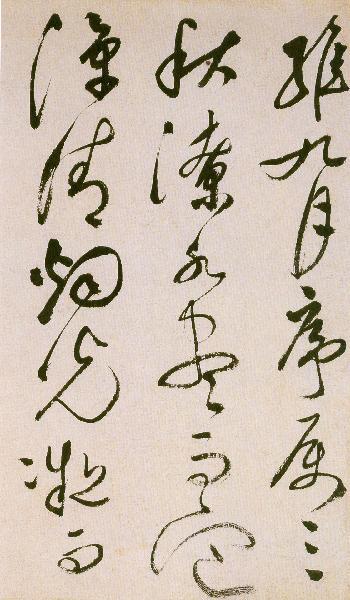 維九月序屬三
秋潦水盡而寒
潭清烟光凝而